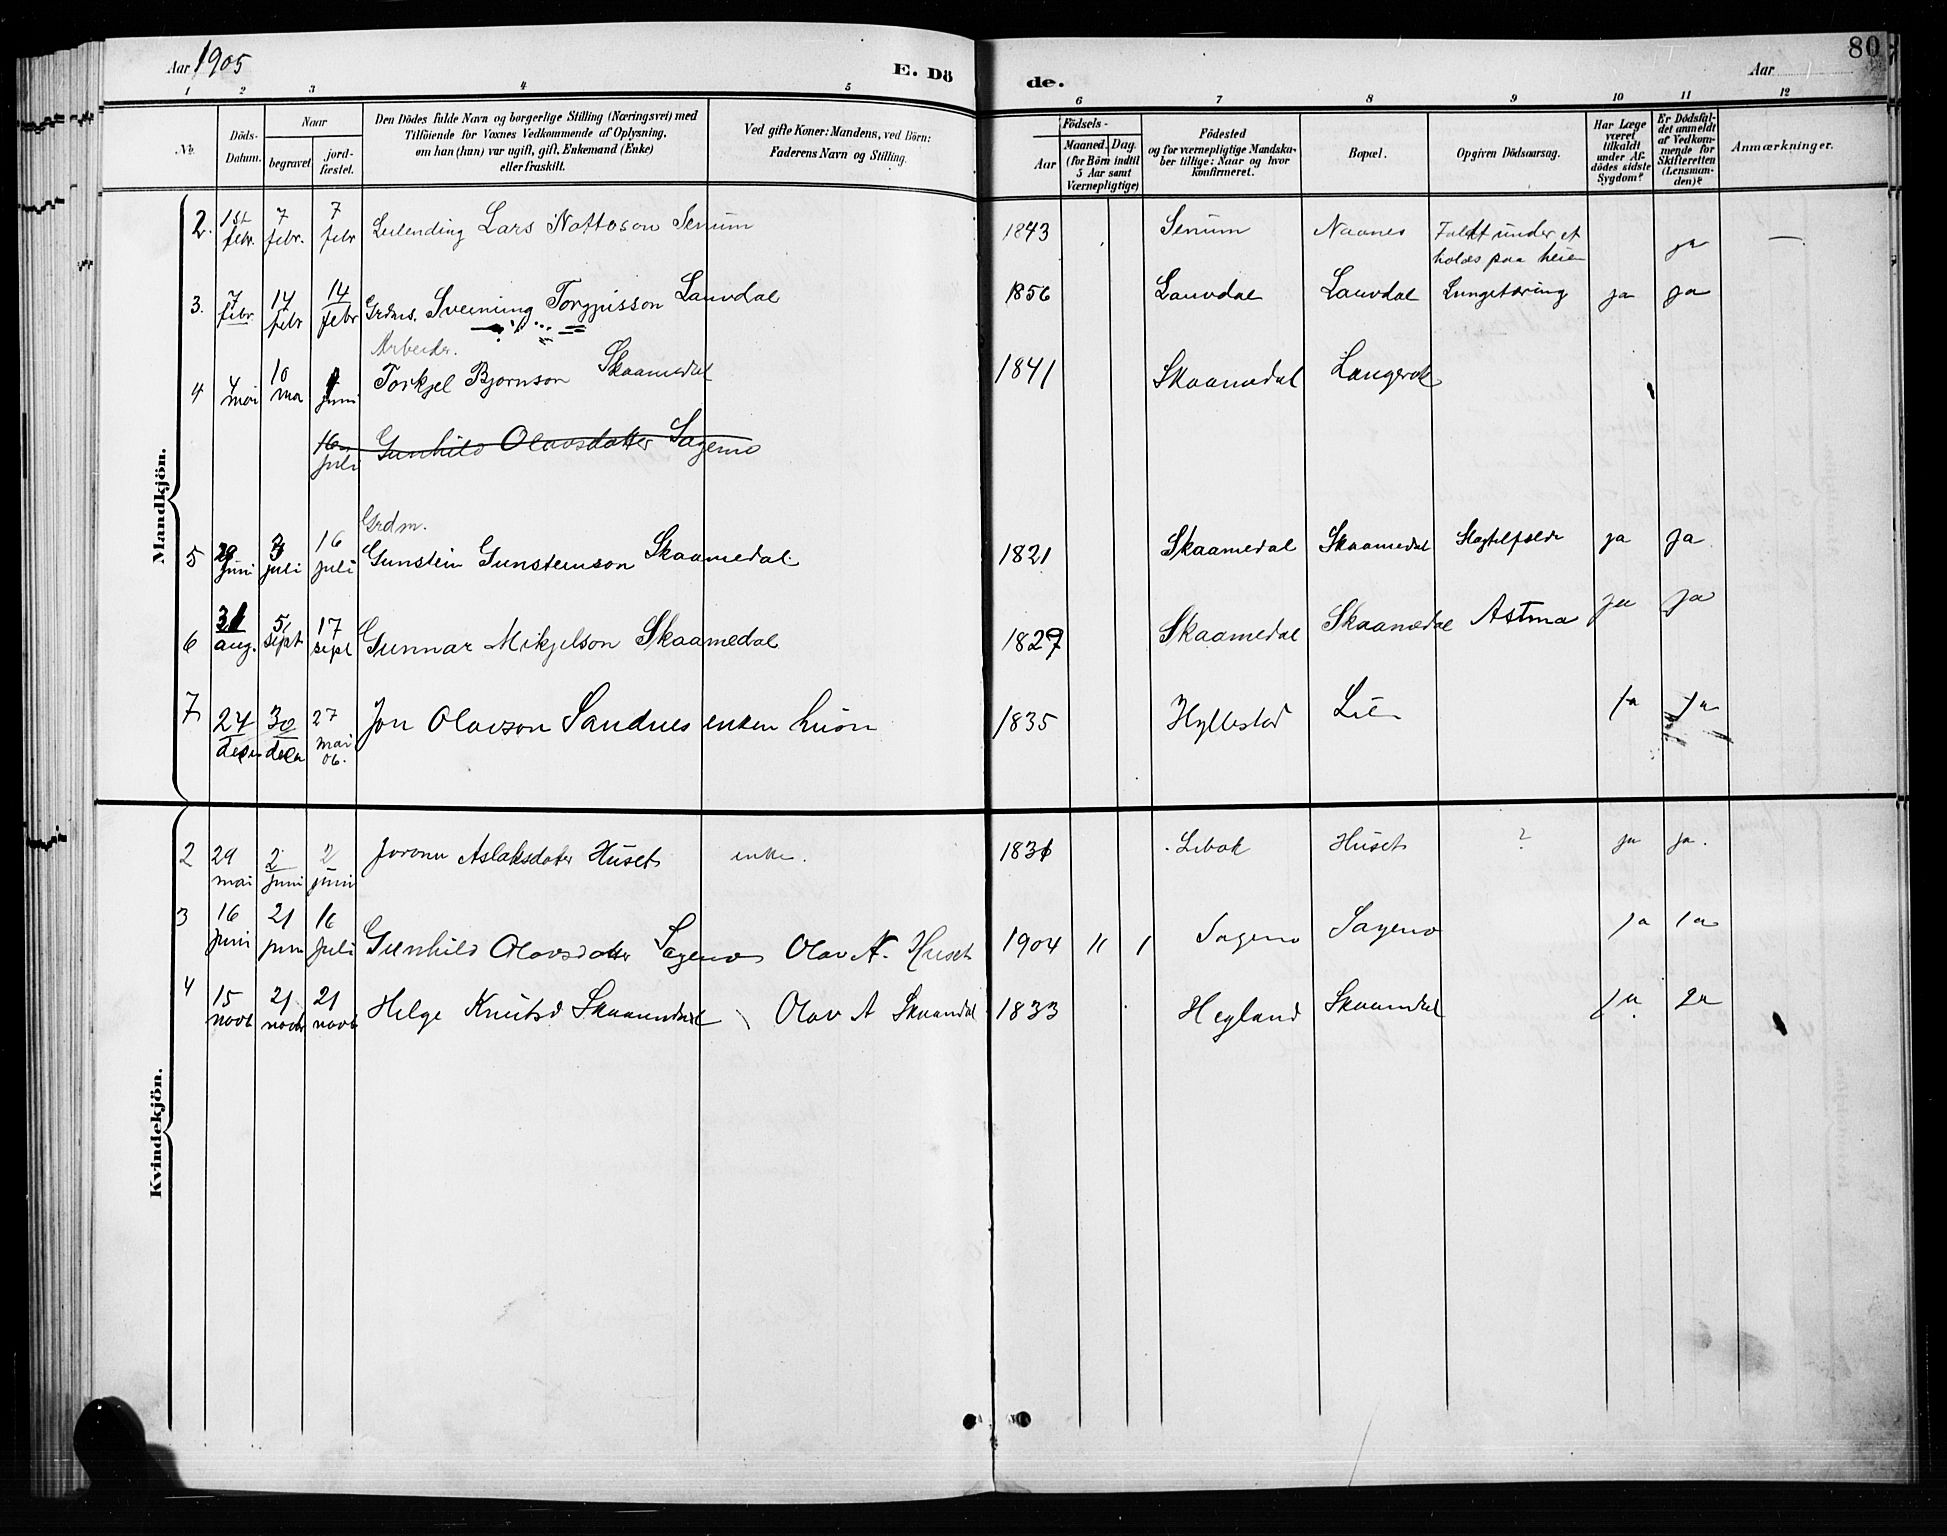 80
Aar 1905 E. Dö de. Aar
1 2 3 4 5 6 7 8 9 10 11 12
No. Döds-Datum. Naar begravet jord-fæstet.
Den Dödes fulde Navn og borgerlige Stilling (Næringsvei) med
Tilföiende for Voxnes Vedkommende af Oplysning,
om han (hun) var ugift, gift, Enkemand (Enke)
eller fraskilt.
Ved gifte Koner: Mandens, ved Börn:
Faderens Navn og Stilling.
Födsels-
Aar Maaned. Dag.
(for Börn indtil
5 Aar samt
Værnepligtige)
Födested
og for værnepligtige Mandska-
ber tillige: Naar og hvor
konfirmeret.
Bopæl.
Opgiven Dödsaarsag.
Har Læge
været
tilkaldt
under Af-
dödes sidste
Sygdom?
Er Dödsfal-
det anmeldt
af Vedkom-
mende for
Skifteretten
(Lensman-
den)?
Anmærkninger.
Mandkjön.
2. 1st febr. 7 febr. 7 febr Lars Nottoson Senum 1843 Senum Naanes Faldt under et ja —
holds paa heien
3. 7 febr. 14 febr 14 febr Grdm. Sveinung Torgjusson Lauvdal 1856 Lauvdal Lauvdal Lungetæring ja ja
Arbeider.
4 4 mai 10 mai juni Torkjel Bjornson Skaamedal 1841 Skaamedal Langerak
16 juli Gunhild Olavsdatter Sagemo
Grdm.
5 29 juni 3 juli 16 juli Gunstein Gunsteinson Skaamedal 1821 Skaamedal Skaamedal ja ja
6 31 aug. 5 sept 17 sept Gunnar Mikjelson Skaamedal 1829 Skaamedal Skaamedal Astma ja ja
7 24 30 27 mai 06. Jon Olavson Sandnes 1835 Hyllestad ja ja
Kvindekjön.
2 29 mai 2 juni 2 juni Jorunn Aslaksdater Huset enke. 1831 Huset ? ja ja.
3 16 juni 21 juni 16 juli Gunhild Olavsdatter Sagemo Olav A. Huset 1904 11 1 Sagemo Sagemo ja ja
4 15 novb 21 novbr 21 novb Helge Knutsd Skaamedal Olav A Skaamdal 1833 Hegland Skaamdal ja ja